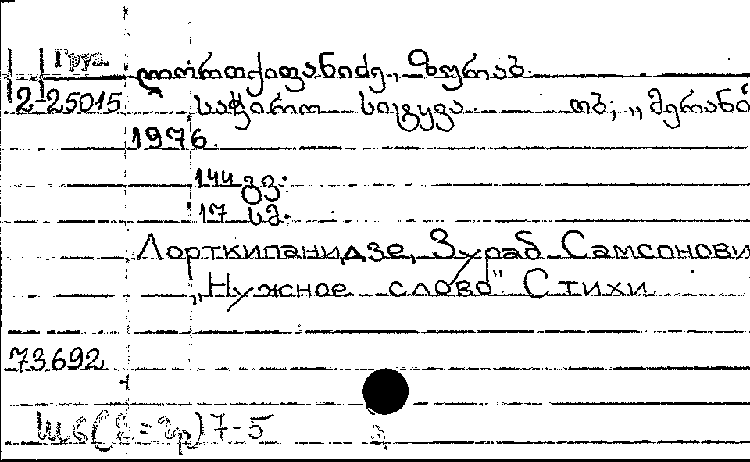 Груз.
ლორთქიფანიძე, ზურაბ.
2-25015 საჭირო სიტყვა თბ, „მერანი
1976
144 გვ.
17 სმ.
Лорткипанидзе, Зураб Самсонови
„Нужное слово" Стихи
73692
Ш6(2=Гр)7-5